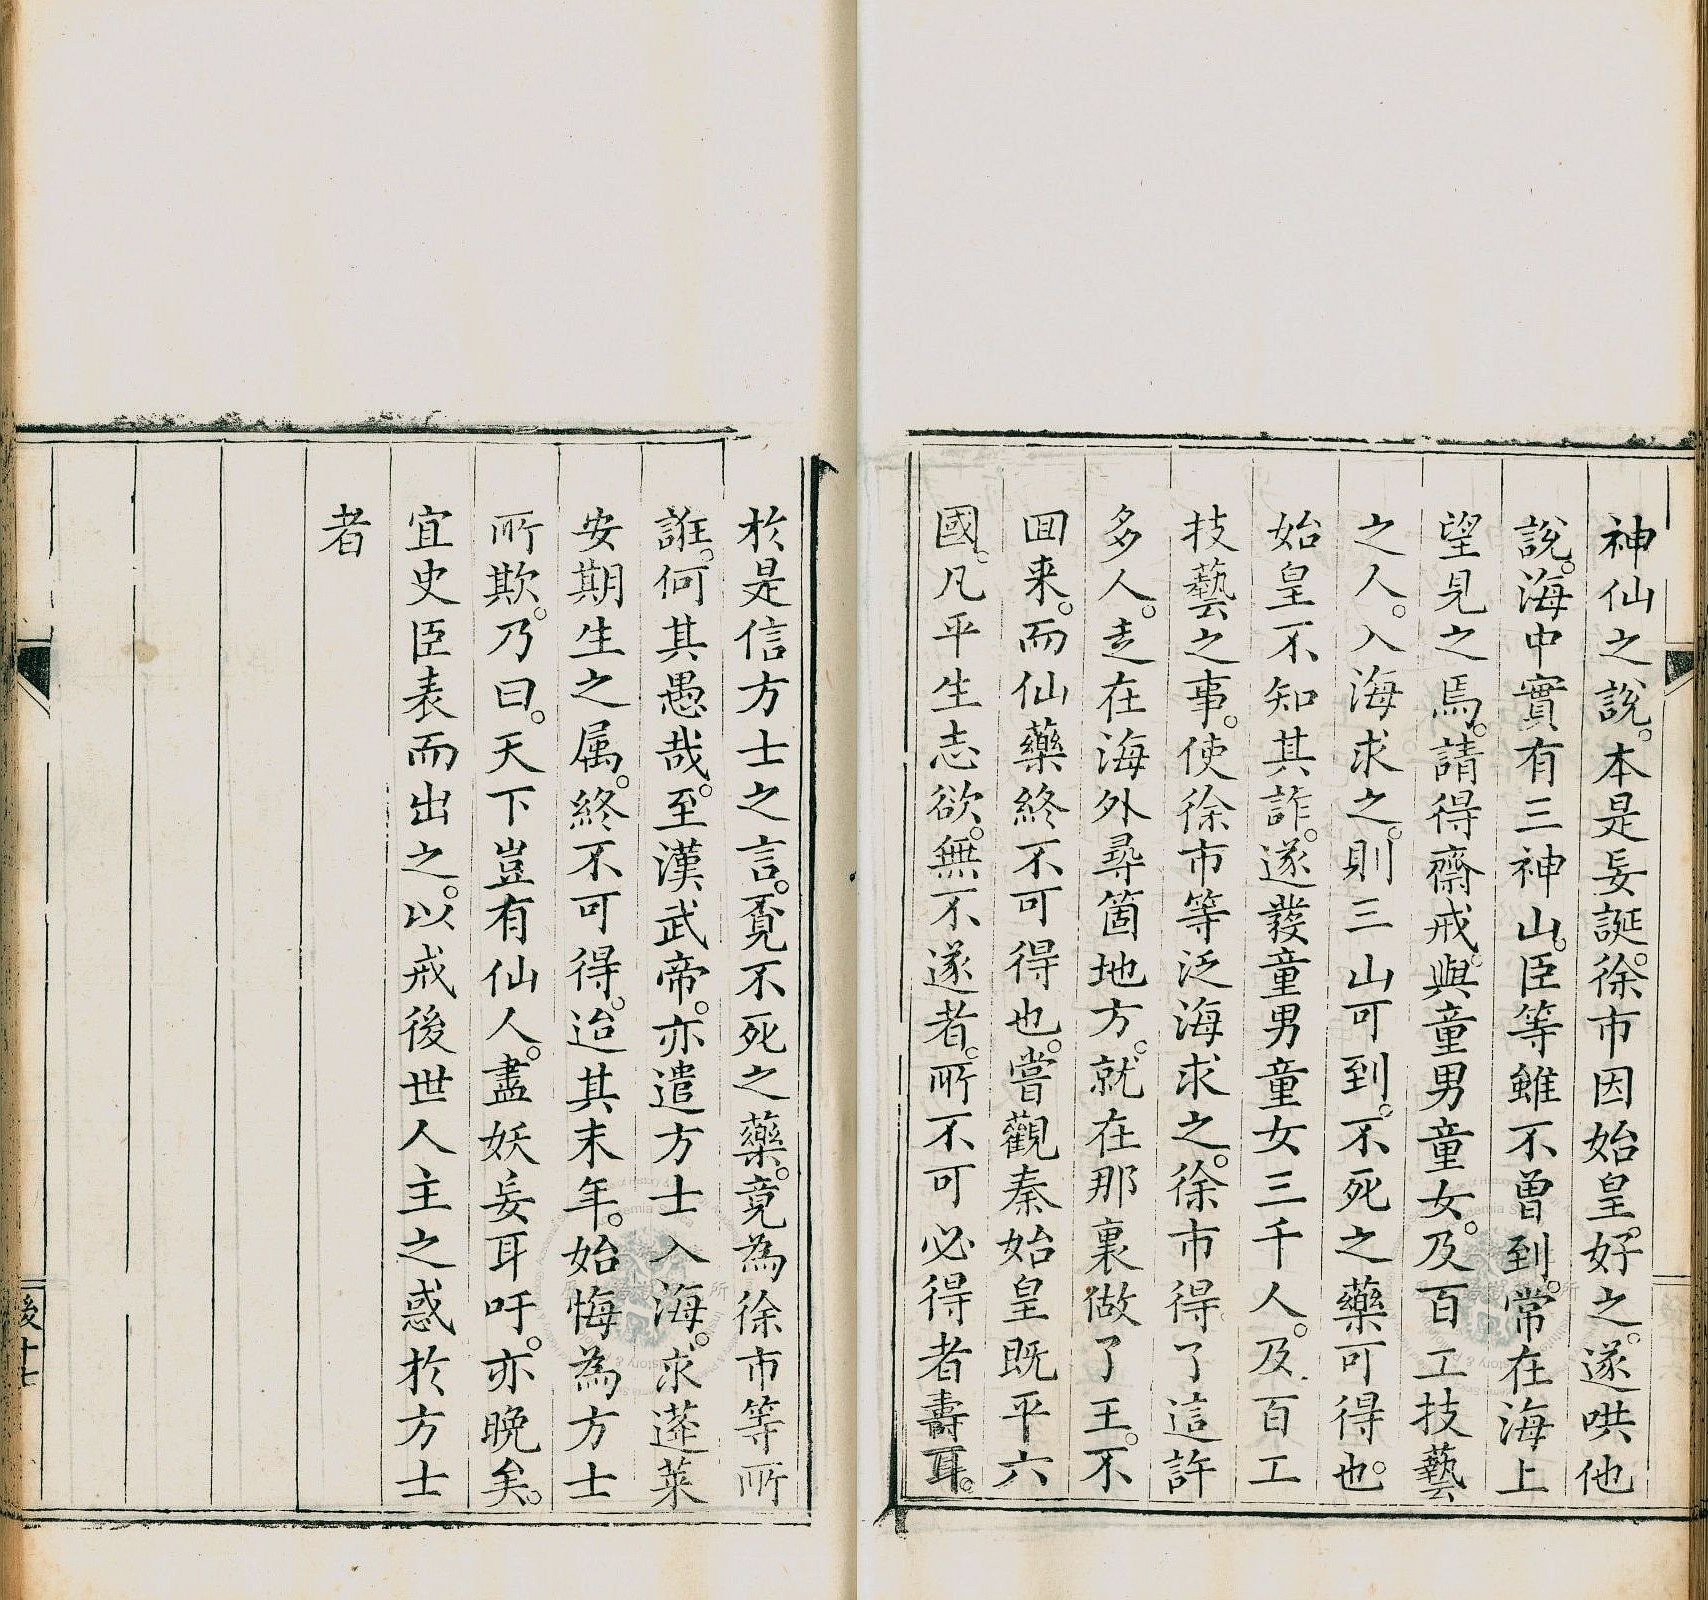 神仙之說。本是妄誕。徐市因始皇。好之。遂哄他
說。海中實有三神山。臣等雖不曾到。常在海上
望見之焉。請得齋戒。與童男童女。及百工技藝
之人。入海求之。則三山可到。不死之藥可得也。
始皇不知其詐。遂發童男童女三千人。及百工
技藝之事。使徐市等泛海求之。徐市得了這許
多人。走在海外尋箇地方。就在那裏做了王。不
囬来。而仙藥終不可得也。嘗觀秦始皇既平六
國。凡平生志欲。無不遂者。所不可必得者壽耳。
於是信方士之言。覔不死之藥。竟為徐市等所
誑。何其愚哉。至漢武帝。亦遣方士入海。求蓬萊
安期生之属。終不可得。迨其末年。始悔為方士
所欺。乃曰。天下豈有仙人。盡妖妄耳吁。亦晚矣。
宜史臣表而出之。以戒後世人主之惑於方士
者
後十七